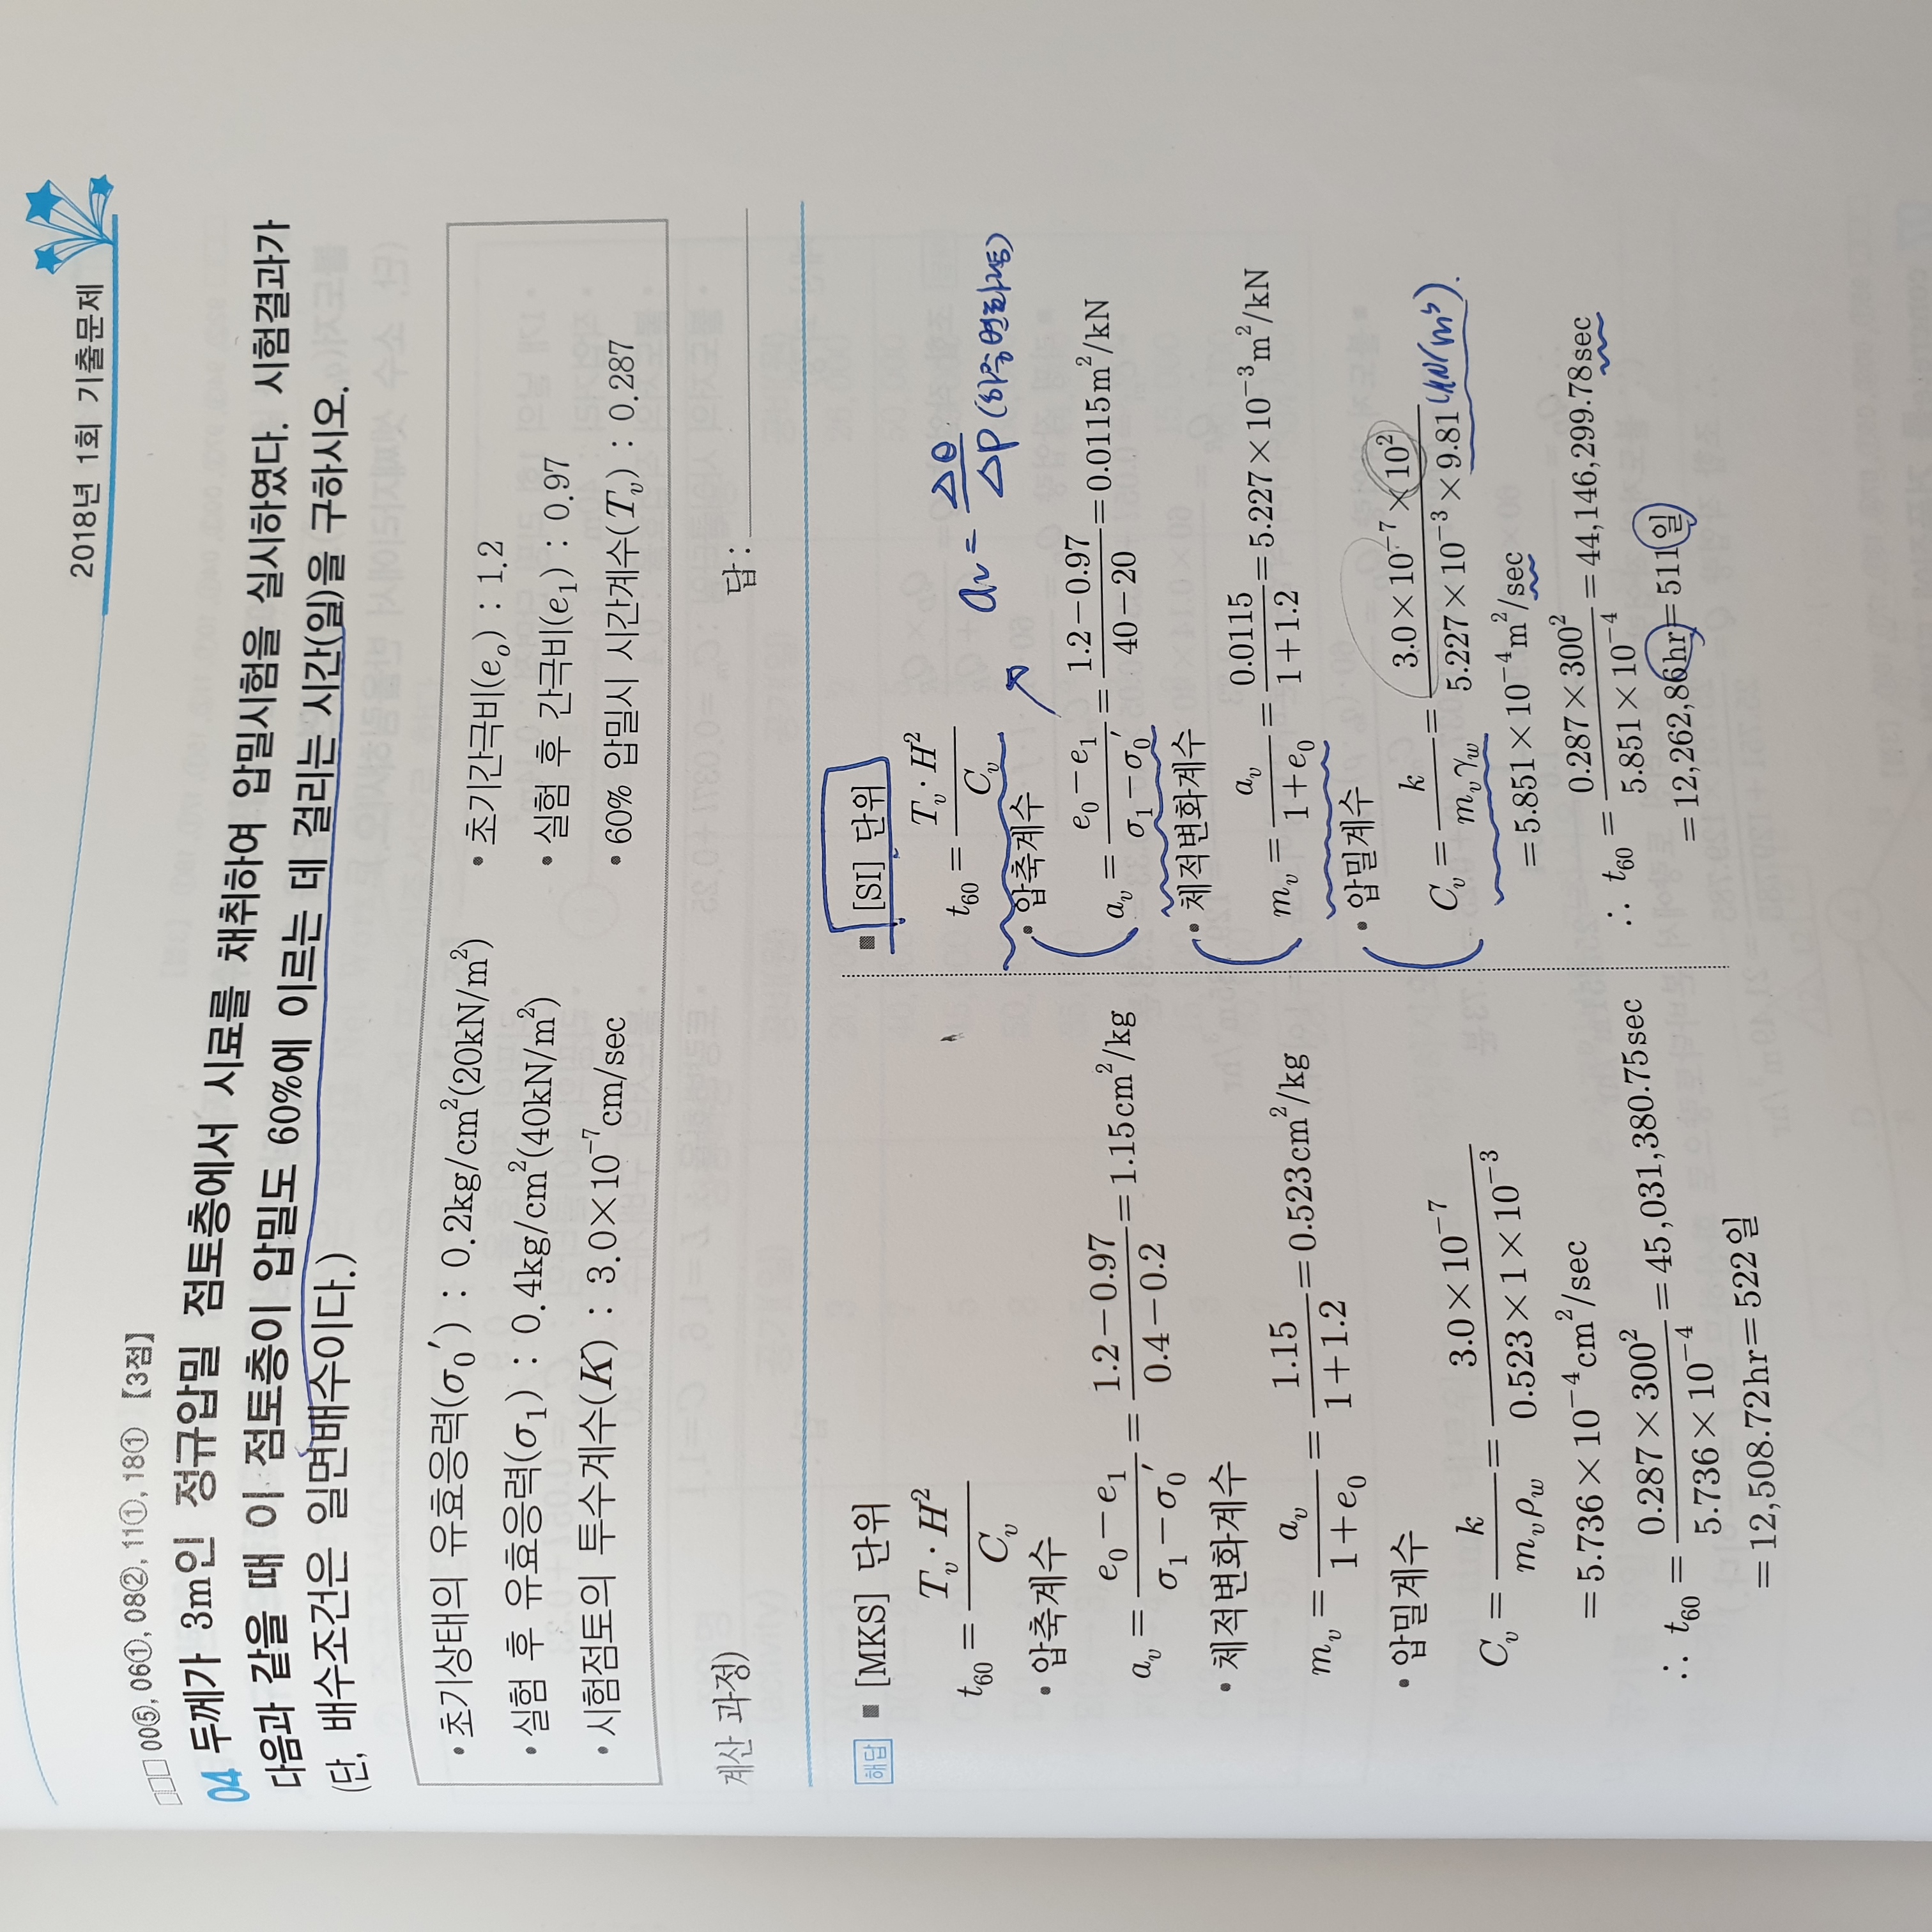 2018년 1회 기출문제
□□□ 00⑤, 06①, 08②, 11①, 18① 【3점】
04 두께가 3m인 정규압밀 점토층에서 시료를 채취하여 압밀시험을 실시하였다. 시험결과가
다음과 같을 때 이 점토층이 압밀도 60%에 이르는 데 걸리는 시간(일)을 구하시오.
(단, 배수조건은 일면배수이다.)
• 초기상태의 유효응력(σ₀′) : 0.2kg/cm²(20kN/m²) • 초기간극비(e₀) : 1.2
• 실험 후 유효응력(σ₁) : 0.4kg/cm²(40kN/m²) • 실험 후 간극비(e₁) : 0.97
• 시험점토의 투수계수(K) : 3.0×10⁻⁷cm/sec • 60% 압밀시 시간계수(Tᵥ) : 0.287
계산 과정) 답 :
해답 ■ [MKS] 단위
t₆₀ = Tᵥ·H² / Cᵥ
• 압축계수
aᵥ = (e₀−e₁)/(σ₁−σ₀′) = (1.2−0.97)/(0.4−0.2) = 1.15cm²/kg
• 체적변화계수
mᵥ = aᵥ/(1+e₀) = 1.15/(1+1.2) = 0.523cm²/kg
• 압밀계수
Cᵥ = k/(mᵥρw) = 3.0×10⁻⁷/(0.523×1×10⁻³)
= 5.736×10⁻⁴cm²/sec
∴ t₆₀ = 0.287×300²/(5.736×10⁻⁴) = 45,031,380.75sec
= 12,508.72hr = 522일
■ [SI] 단위
t₆₀ = Tᵥ·H² / Cᵥ
av = Δe/ΔP (하중변화량)
• 압축계수
aᵥ = (e₀−e₁)/(σ₁−σ₀′) = (1.2−0.97)/(40−20) = 0.0115m²/kN
• 체적변화계수
mᵥ = aᵥ/(1+e₀) = 0.0115/(1+1.2) = 5.227×10⁻³m²/kN
• 압밀계수
Cᵥ = k/(mᵥγw) = 3.0×10⁻⁷×10²/(5.227×10⁻³×9.81) (kN/m³).
= 5.851×10⁻⁴m²/sec
∴ t₆₀ = 0.287×300²/(5.851×10⁻⁴) = 44,146,299.78sec
= 12,262,86hr = 511일